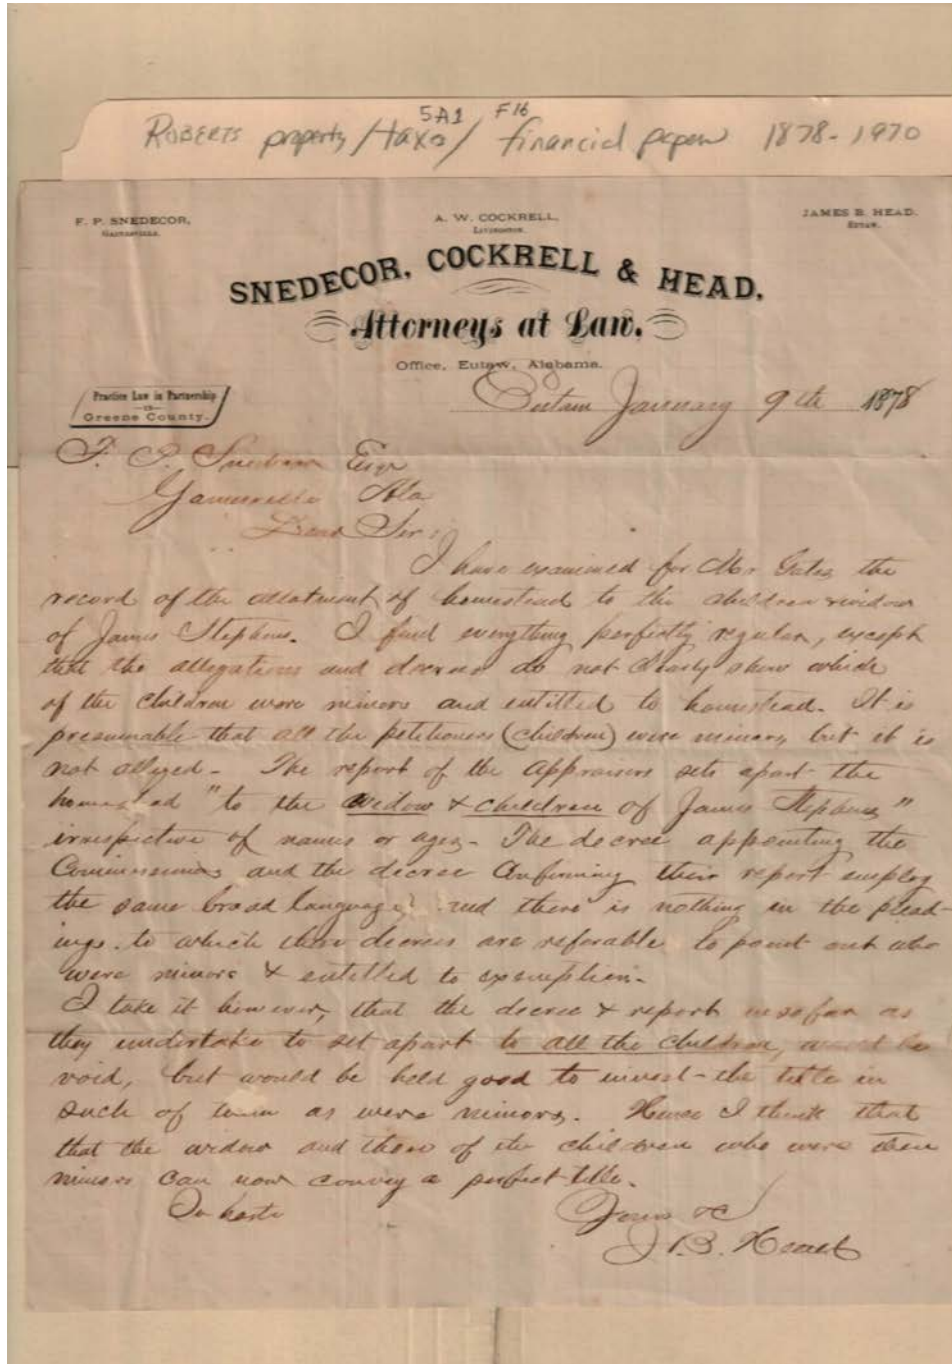 5A1 F16
ROBERTS property/taxo/ financial papers 1878-1970
F. P. SNEDECOR,
GAINESVILLE.
A. W. COCKRELL,
LIVINGSTON.
JAMES B. HEAD.
EUTAW.
SNEDECOR, COCKRELL & HEAD,
Attorneys at Law.
Office, Eutaw, Alabama.
Practice Law in Partnership
—IN—
Greene County.
Eutaw January 9th 1878
F. P. Snedecor Esqr
Gainesville Ala
Dear Sir:
I have examined for Mr Gates the
record of the allotment of homestead to the children & widow
of James Stephens. I find everything perfectly regular, except
that the allegations and decree do not clearly show which
of the children were minors and entitled to homestead. It is
presumable that all the petitioners (children) were minors, but it is
not alleged - The report of the appraisers sets apart the
homestead "to the widow & children of James Stephens"
irrespective of names or ages - The decree appointing the
Commissioners and the decree Confirming their report employ
the same broad language, and there is nothing in the plead-
ings to which these decrees are referable to point out who
were minors & entitled to exemption -
I take it however, that the decree & report in so far as
they undertake to set apart to all the children, would be
void, but would be held good to invest the title in
such of them as were minors. Hence I think that
that the widow and those of the children who were then
minors can now convey a perfect title.
In haste
Yours &c
J. B. Head